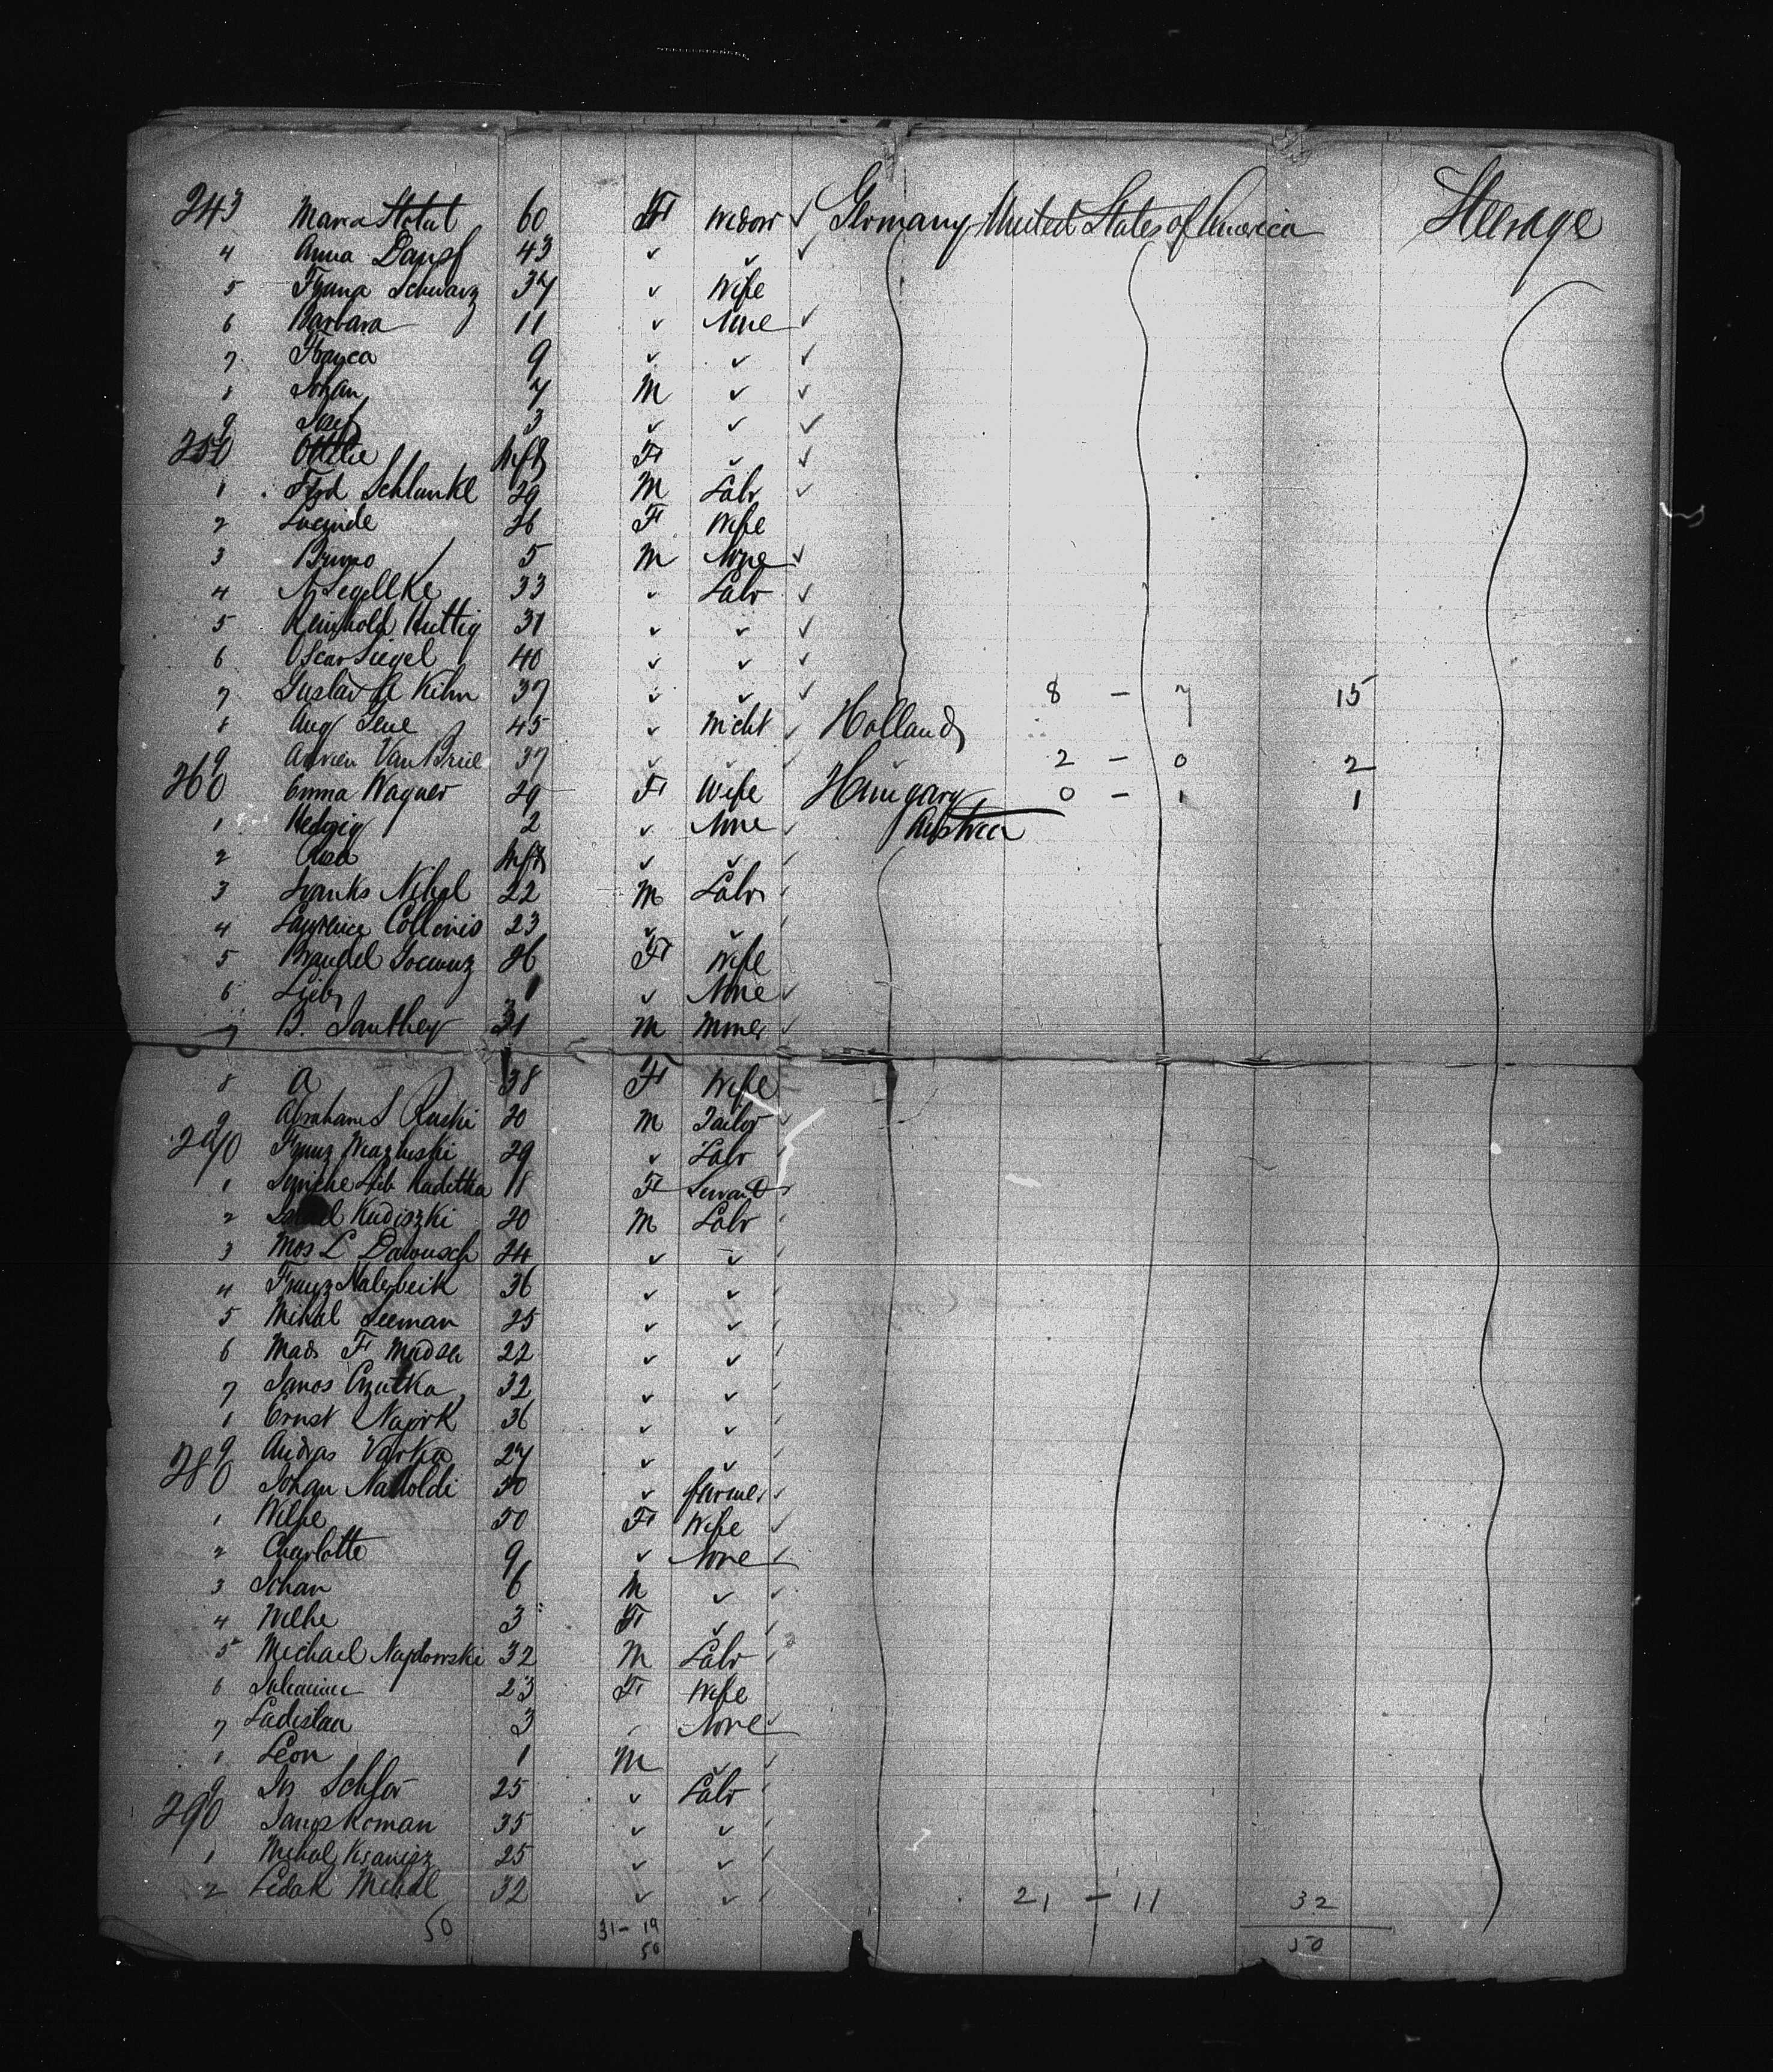 243 Maria Stotut 60 F Widow ✓ Germany United States of America Steerage
4 Anna Dampf 43 ✓ ✓ ✓
5 Frana Schwarz 37 ✓ Wife
6 Barbara 11 ✓ None ✓
7 9 ✓ ✓ ✓
8 Johan 7 M ✓ ✓
9 Josef 3 ✓ ✓ ✓
250 Ottilie Inft F ✓ ✓
1 Ferd Schlunke 29 M Labr ✓
2 Lucinde 26 F Wife
3 Bruno 5 M None ✓
4 33 ✓ Labr ✓
5 Reinhold Huttig 31 ✓ ✓ ✓
6 Oscar Siegel 40 ✓ ✓ ✓
7 Gustav A Kihn 37 ✓ ✓ ✓ 8 - 7 15
8 Aug 45 ✓ Mcht ✓ Holland
9 Adrien Van Briel 37 ✓ ✓ ✓ 2 - 0 2
260 Emma Wagner 29 F Wife Hungary 0 - 1 1
1 Hedwig 2 ✓ None ✓ Austria
2 Rosa Inft ✓ ✓ ✓
3 Nihal 22 M Labr ✓
4 Laurence Collonis 23 ✓ ✓ ✓
5 Brandel 26 F Wife
6 Lieb 1 ✓ None ✓
7 B. Santher 31 M Miner ✓
8 A 38 F Wife
9 Abraham S Rucki 20 M Tailor ✓
270 Franz 29 ✓ Labr ✓
1 Lib Kadetka 18 F Servant
2 Kudiszki 20 M Labr ✓
3 Mos L Dawusch 24 ✓ ✓ ✓
4 Franz Malerbeik 36 ✓ ✓ ✓
5 Mihal Leeman 25 ✓ ✓ ✓
6 Mads F Madsen 22 ✓ ✓ ✓
7 Janos Czutka 32 ✓ ✓ ✓
8 Ernst Najork 36 ✓ ✓ ✓
9 Andras Varka 27 ✓ ✓ ✓
280 Johan Natholdi 50 ✓ farmer ✓
1 Wilhe 50 F Wife ✓
2 Charlotte 9 ✓ None ✓
3 Johan 6 M ✓ ✓
4 Wilhe 3 F ✓ ✓
5 Michael Najdowski 32 M Labr ✓
6 Johanne 23 F Wife
7 Ladislau 3 ✓ None ✓
8 Leon 1 M ✓ ✓
9 Is Schfor 25 ✓ Labr ✓
290 Janos Roman 35 ✓ ✓ ✓
1 Mihal 25 ✓ ✓ ✓
2 Ledak Mihal 32 ✓ ✓ ✓ 21 - 11 32
50 31 - 19 50
50